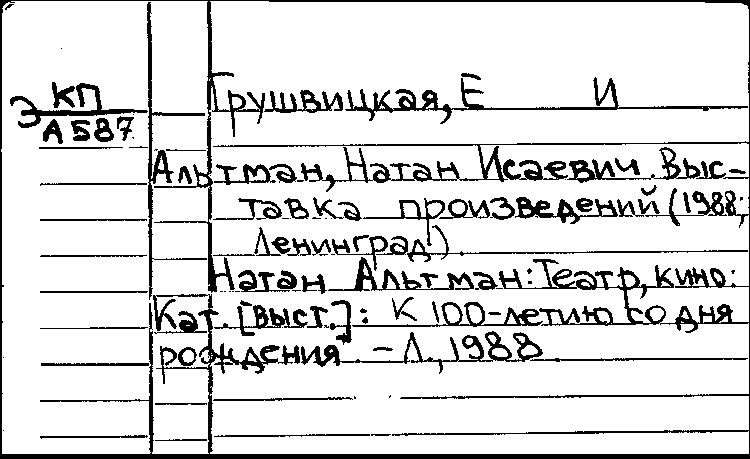 Э КП
А587
Грушвицкая, Е И
Альтман, Натан Исаевич. Выс-
тавка произведений (1988;
Ленинград).
Натан Альтман: Театр, кино:
Кат. [выст.]: К 100-летию со дня
рождения. – Л., 1988